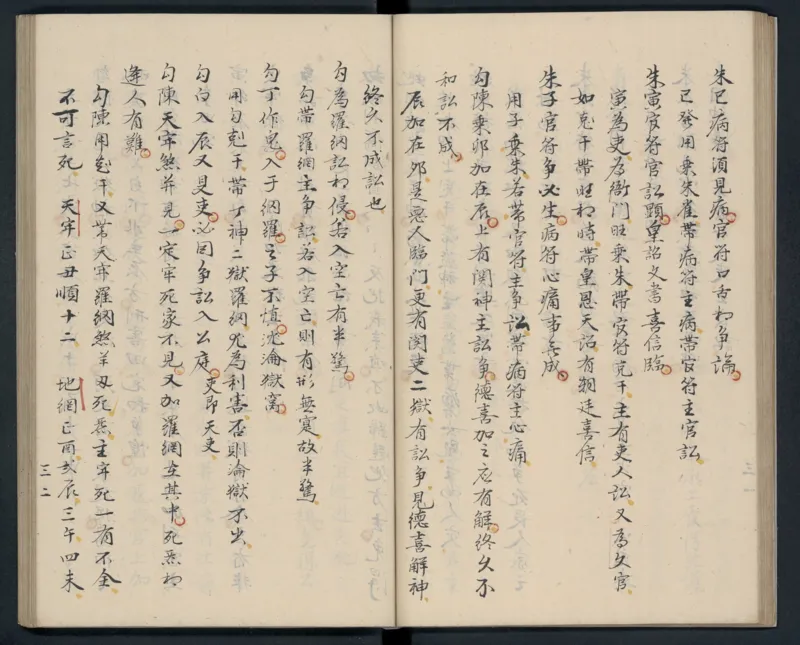 朱巳病符須見病官符口舌相争論
巳發用乗朱雀帯病符主病帯官符主官訟
朱寅官符官訟顕皇詔文書喜信臨
寅為吏為衙門旺乗朱帯官符克干主有吏人訟又為文官
如克干帯旺相時帯皇恩天詔有朝廷喜信
朱子官符争必生病符心痛事無成
用子乗朱若帯官符主争訟帯病符主心痛
勾陳乗卯加在辰上有関神主訟争徳喜加之応有解終久不
和訟不成
辰加在卯是惡人臨門更有関吏二獄有訟争見徳喜解神
終久不成訟也
勾為羅網訟相侵若入空亡有半驚
勾帯羅網主争訟若入空亡則有形無寔故半驚
勾丁作鬼入于網羅之子不慎沈淪獄窩
用勾剋干帯丁神二獄羅網咒為利害否則淪獄不出
勾白入辰又見吏必因争訟入公庭吏即天吏
勾陳天牢煞并見一家牢死家不見又加羅網在其中死炁相
逢人有難
勾陳用剋干又帯天牢羅網煞并死炁主牢死一有不全
不可言死 天牢正丑順十二 地網正酉亥辰三午四未
三二